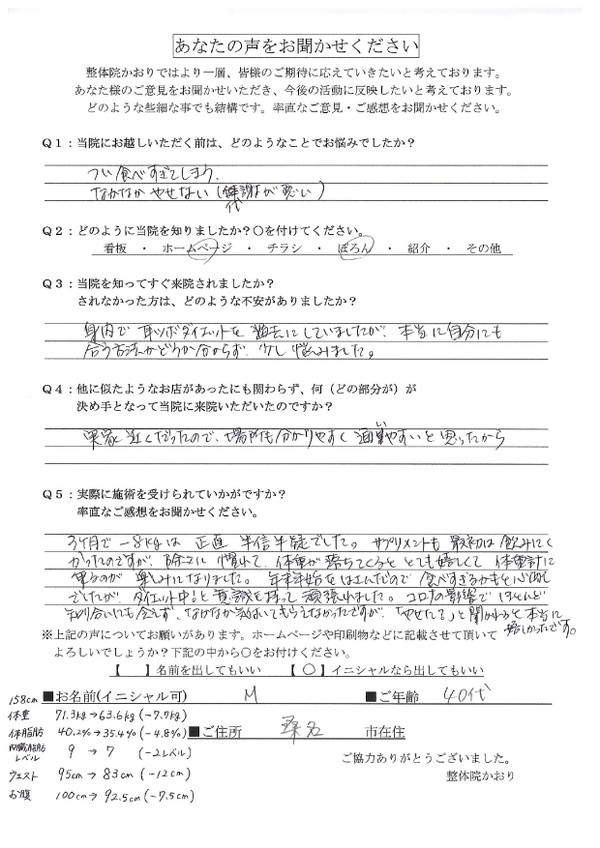 あなたの声をお聞かせください
整体院かおりではより一層、皆様のご期待に応えていきたいと考えております。
あなた様のご意見をお聞かせいただき、今後の活動に反映したいと考えております。
どのような些細な事でも結構です。率直なご意見・ご感想をお聞かせください。
Q1：当院にお越しいただく前は、どのようなことでお悩みでしたか？
つい食べすぎてしまう。
なかなかやせない（代謝が悪い）
Q2：どのように当院を知りましたか？〇を付けてください。
看板 ・ ホームページ ・ チラシ ・ ぽろん ・ 紹介 ・ その他
Q3：当院を知ってすぐ来院されましたか？
されなかった方は、どのような不安がありましたか？
身内で耳ツボダイエットを過去にしていましたが、本当に自分にも
合う方法かどうか分からず、少し悩みました。
Q4：他に似たようなお店があったにも関わらず、何（どの部分が）が
決め手となって当院に来院いただいたのですか？
実家近くだったので、場所も分かりやすく通いやすいと思ったから
Q5：実際に施術を受けられていかがですか？
率直なご感想をお聞かせください。
3ヶ月で－8kgは正直半信半疑でした。サプリメントも最初は飲みにく
かったのですが、徐々に慣れて、体重が落ちてくるととても嬉しくて体重計に
乗るのが楽しみになりました。年末年始をはさんだので食べすぎるかもと心配
でしたが、ダイエット中と意識を持って頑張れました。コロナの影響でほとんど
知り合いにも会えず、なかなか気付いてもらえなかったですが、「やせた？」と聞かれると本当に
嬉しかったです。
※上記の声についてお願いがあります。ホームページや印刷物などに記載させて頂いて
よろしいでしょうか？下記の中から〇をお付けください。
【 】名前を出してもいい 【〇】イニシャルなら出してもいい
158cm ■お名前(イニシャル可) M ■ご年齢 40代
体重 71.3kg→63.6kg (-7.7kg)
体脂肪 40.2%→35.4% (-4.8%) ■ご住所 桑名 市在住
内臓脂肪レベル 9 → 7 (-2レベル)
ご協力ありがとうございました。
ウエスト 95cm→83cm (-12cm)
整体院かおり
お腹 100cm→92.5cm (-7.5cm)